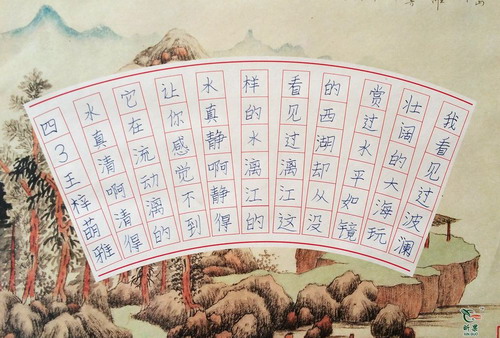 我看见过波澜
壮阔的大海玩
赏过水平如镜
的西湖却从没
看见过漓江这
样的水漓江的
水真静啊静得
让你感觉不到
它在流动漓的
水真清啊清得
四3王梓萌雅